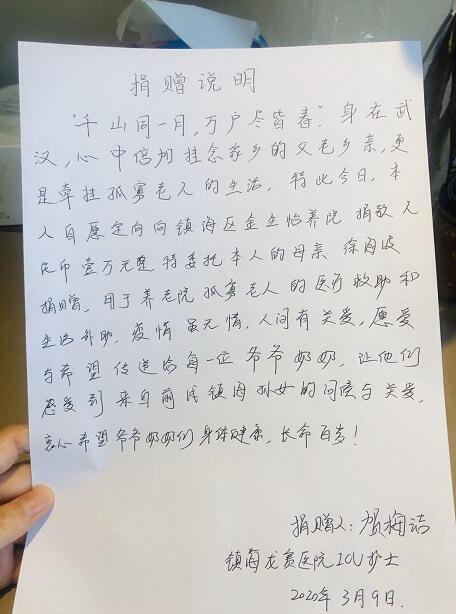 捐赠说明
"千山同一月,万户尽皆春。"身在武
汉,心中倍加挂念家乡的父老乡亲,更
是牵挂孤寡老人的生活。特此今日,本
人自愿定向向镇海区金生怡养院捐款人
民币壹万元整特委托本人的母亲徐海波
捐赠。用于养老院孤寡老人的医疗救助和
生活补助。疫情虽无情,人间有关爱,愿爱
与希望传递给每一位爷爷奶奶,让他们
感受到来自前线镇海孙女的问候与关爱,
衷心希望爷爷奶奶们身体健康,长命百岁!
捐赠人:贺梅洁
镇海龙赛医院ICU护士
2020年3月9日.